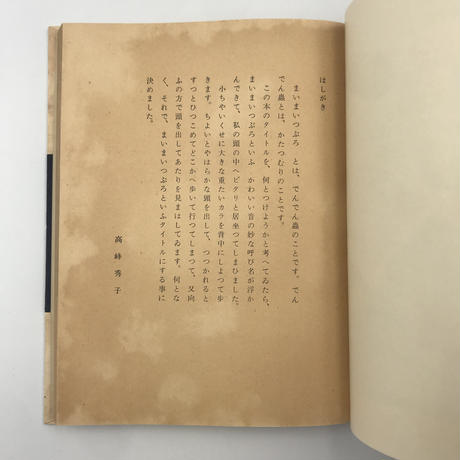 はしがき
まいまいつぶろ とは、でんでん蟲のことです。でん
でん蟲とは、かたつむりのことです。
この本のタイトルを、何とつけようかと考へてゐたら、
まいまいつぶろといふ かわいい音の妙な呼び名が浮か
んできて、私の頭の中へピタリと居坐つてしまひました。
小ちやいくせに大きな重たいカラを背中にしよつて歩
きます。ちよいとやはらかな頭を出して、つつかれると
すつとひつこめてどこかへ歩いて行つてしまつて、又向
ふの方で頭を出してあたりを見まはしてゐます。何とな
く、それで、まいまいつぶろといふタイトルにする事に
決めました。
高峰秀子